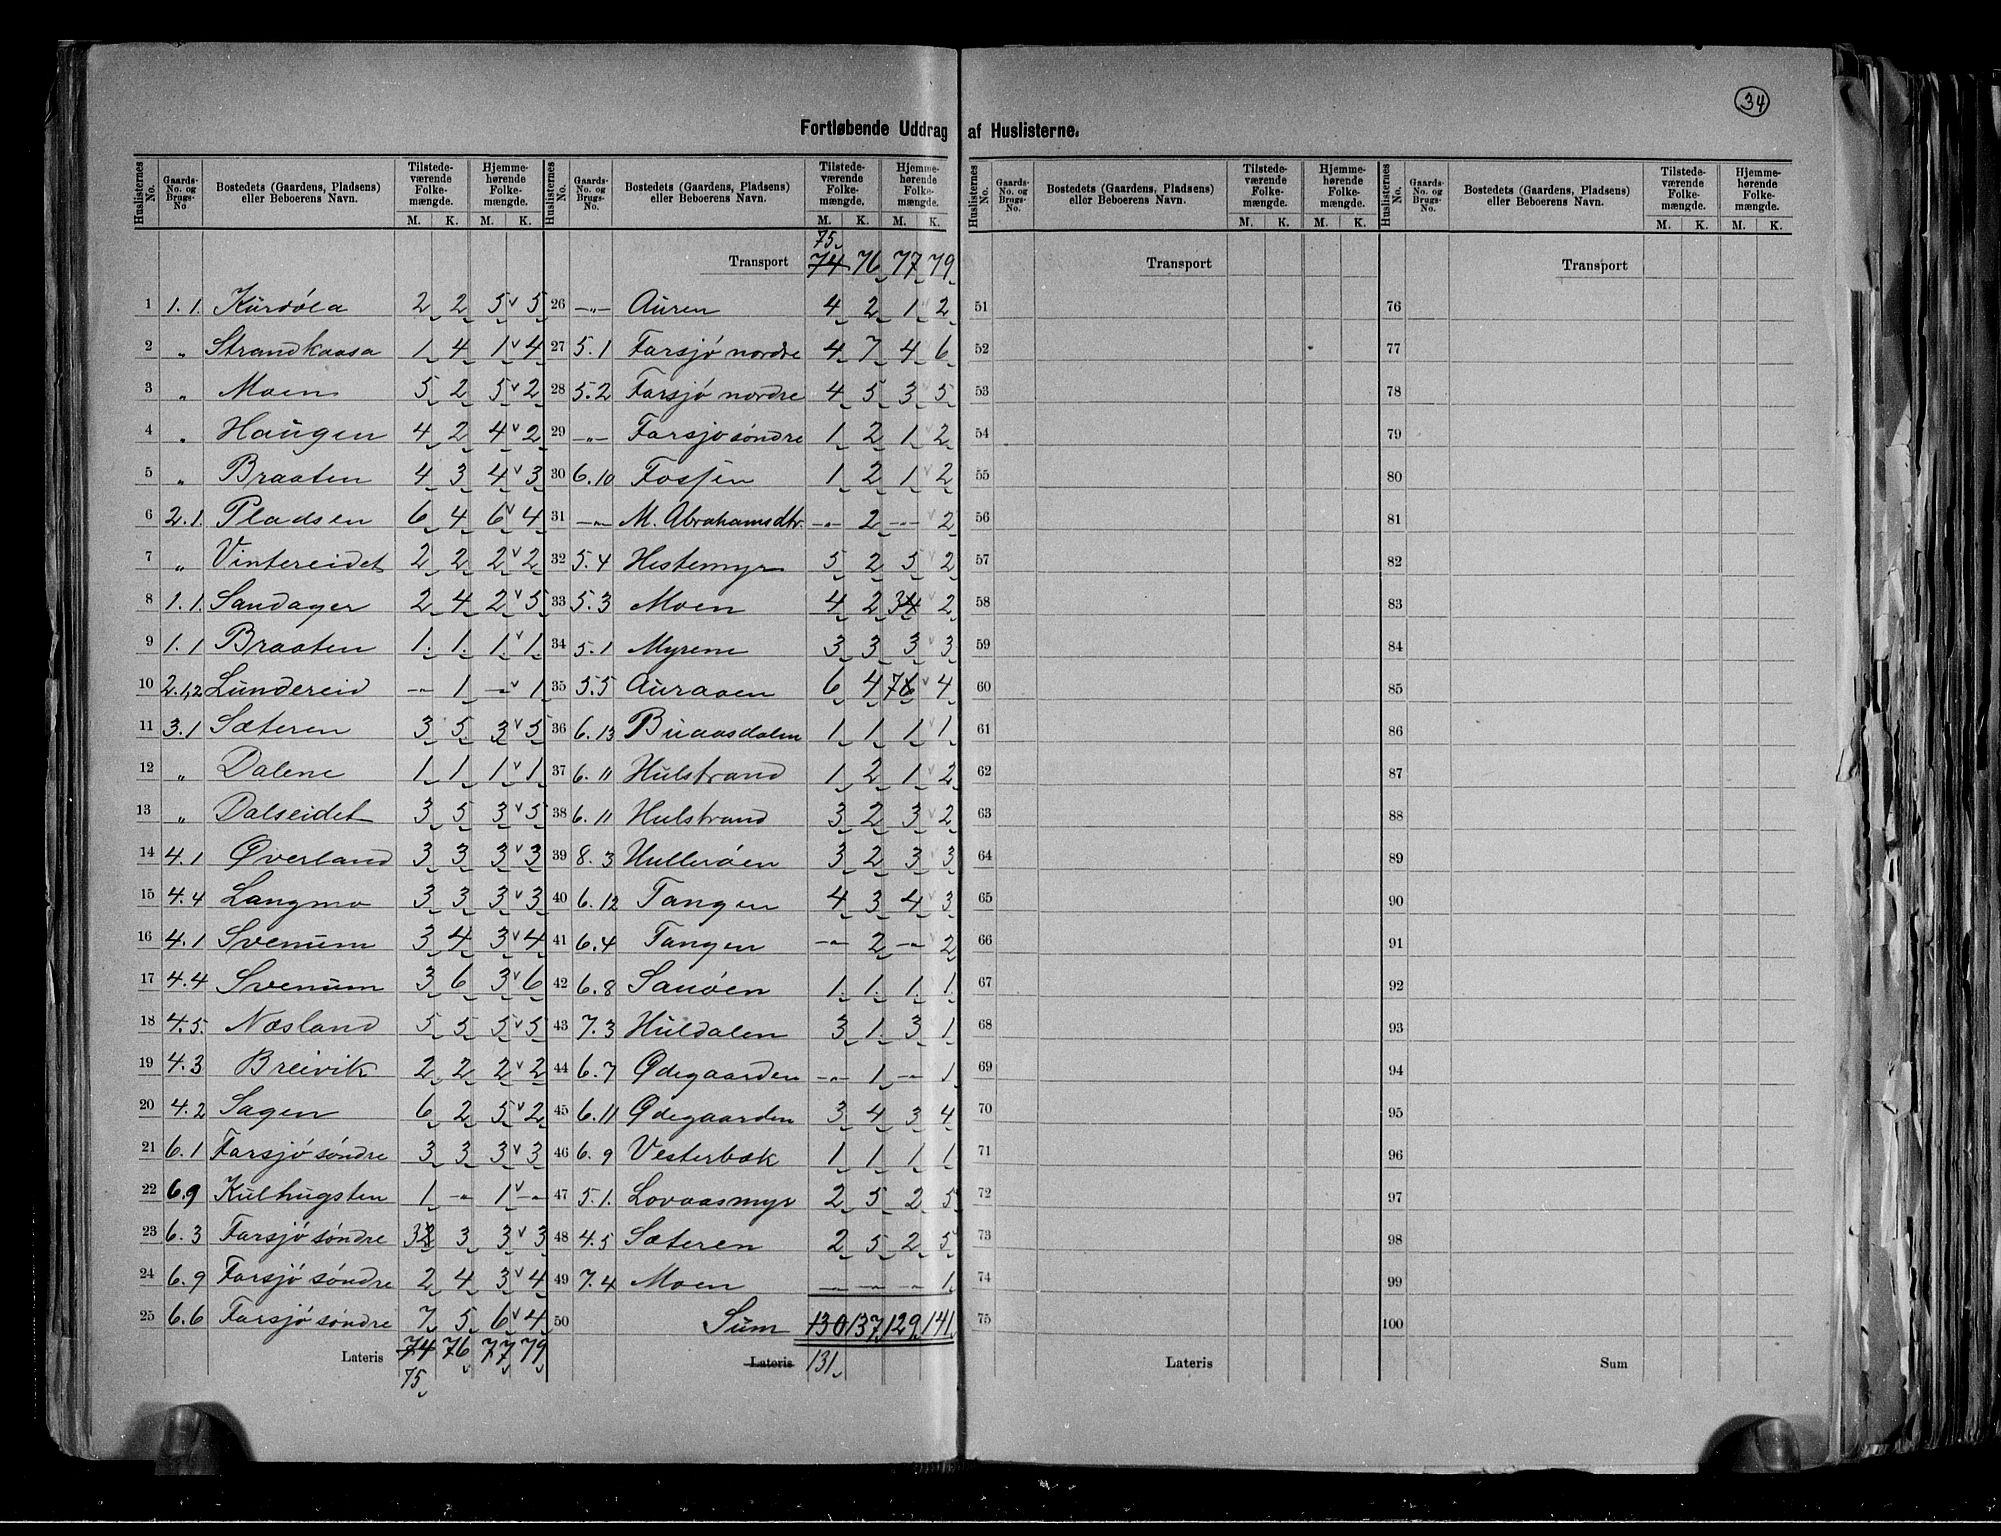 34
Fortløbende Uddrag af Huslisterne.
Huslisternes No. Gaards-No. og Brugs-No Bostedets (Gaardens, Pladsens) eller Beboerens Navn. Tilstede-værende Folke-mængde. M. K. Hjemme-hørende Folke-mængde. M. K.
1 1.1. Kurdøla 2 2 5 5
2 „ Strandkaasa 1 4 1 4
3 „ Moen 5 2 5 2
4 „ Haugen 4 2 4 2
5 „ Braaten 4 3 4 3
6 2.1. Pladsen 6 4 6 4
7 „ Vintereidet 2 2 2 2
8 1.1. Sandager 2 4 2 5
9 1.1 Braaten 1. 1. 1. 1.
10 2.1,2 Lundereid -„- 1 -„- 1
11 3.1 Sæteren 3 5 3 5
12 „ Dalene 1 1 1 1
13 „ Dalseidet 3 5 3 5
14 4.1 Øverland 3 3 3 3
15 4.4 Langmo 3 3 3 3
16 4.1 Svenum 3 4 3 4
17 4.4 Svenum 3 6 3 6
18 4.5. Næsland 5 5 5 5
19 4.3 Breivik 2 2 2 2
20 4.2 Sagen 6 2 5 2
21 6.1 Farsjø søndre 3 3 3 3
22 6.9 Kulhugsten 1 -„- 1 -„-
23 6.3 Farsjø søndre 32 3 3 3
24 6.9 Farsjø søndre 2 4 3 4
25 6.6 Farsjø søndre 7 5 6 4
Lateris 74 76 77 79
75
Huslisternes No. Gaards-No. og Brugs-No. Bostedets (Gaardens, Pladsens) eller Beboerens Navn. Tilstede-værende Folke-mængde. M. K. Hjemme-hørende Folke-mængde. M. K.
75
Transport 74 76 77 79
26 -„- Auren 4 2 1 2
27 5.1 Farsjø nordre 4 7 4 6
28 5.2 Farsjø nordre 4 5 3 5
29 -„- Farsjø søndre 1 2 1 2
30 6.10 Fossen 1 2 1 2
31 -„- M. Abrahamsdtr. -„- 2 -„- 2
32 5.4 Hestemyr 5 2 5 2
33 5.3 Moen 4 2 34 2
34 5.1 Myrene 3 3 3 3
35 5.5 Auraaen 6 4 76 4
36 6.13 Buaasdalen 1 1 1 1
37 6.11 Hulstrand 1 2 1 2
38 6.11 Hulstrand 3 2 3 2
39 8.3 Hullerøen 3 2 3 3
40 6.12 Tangen 4 3 4 3
41 6.4 Tangen -„- 2 -„- 2
42 6.8 Sanøen 1. 1. 1. 1
43 7.3 Huldalen 3 1. 3 1
44 6.7 Ødegaarden -„- 1 -„- 1
45 6.11 Ødegaarden 3 4 3 4
46 6.9 Vesterbæk 1 1 1 1
47 5.1. Lovaasmyr 2 5 2 5
48 4.5 Sæteren 2 5 2 5
49 7.4 Moen -„- -„- -„- 1.
50 Sum 130 137 129 141
Lateris 131
Huslisternes No. Gaards-No. og Brugs-No. Bostedets (Gaardens, Pladsens) eller Beboerens Navn. Tilstede-værende Folke-mængde. M. K. Hjemme-hørende Folke-mængde. M. K.
Transport
51
52
53
54
55
56
57
58
59
60
61
62
63
64
65
66
67
68
69
70
71
72
73
74
75
Lateris
Huslisternes No. Gaards-No. og Brugs-No. Bostedets (Gaardens, Pladsens) eller Beboerens Navn. Tilstede-værende Folke-mængde. M. K. Hjemme-hørende Folke-mængde. M. K.
Transport
76
77
78
79
80
81
82
83
84
85
86
87
88
89
90
91
92
93
94
95
96
97
98
99
100
Sum